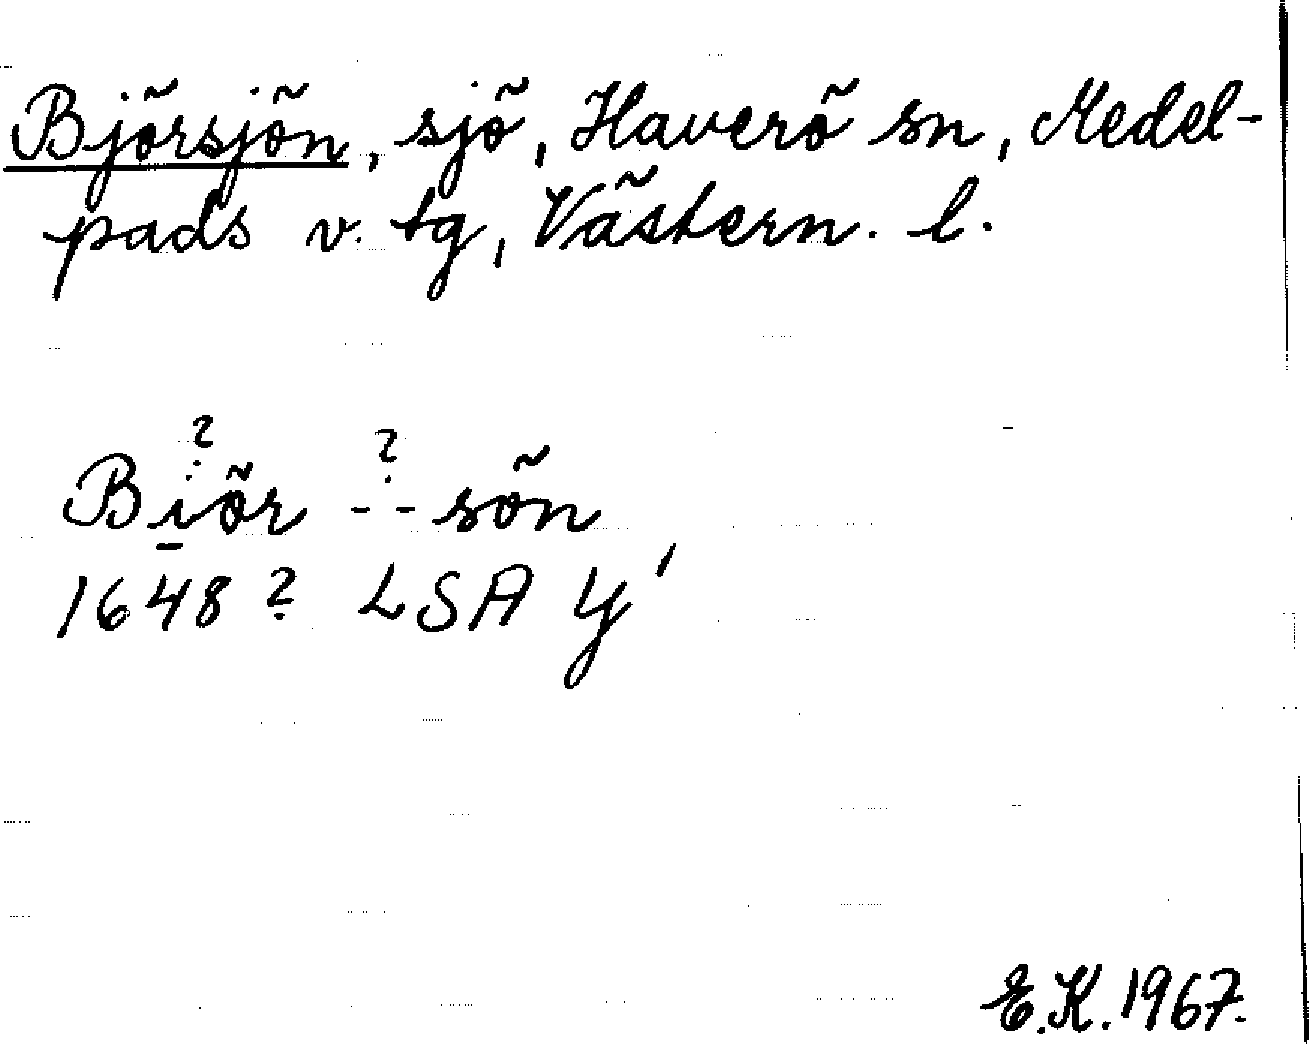 Björsjön, sjö, Haverö sn, Medel-
pads v. tg, Västern. l.
? ?
Biör -- sön
1648? LSA Y'
E.K. 1967.